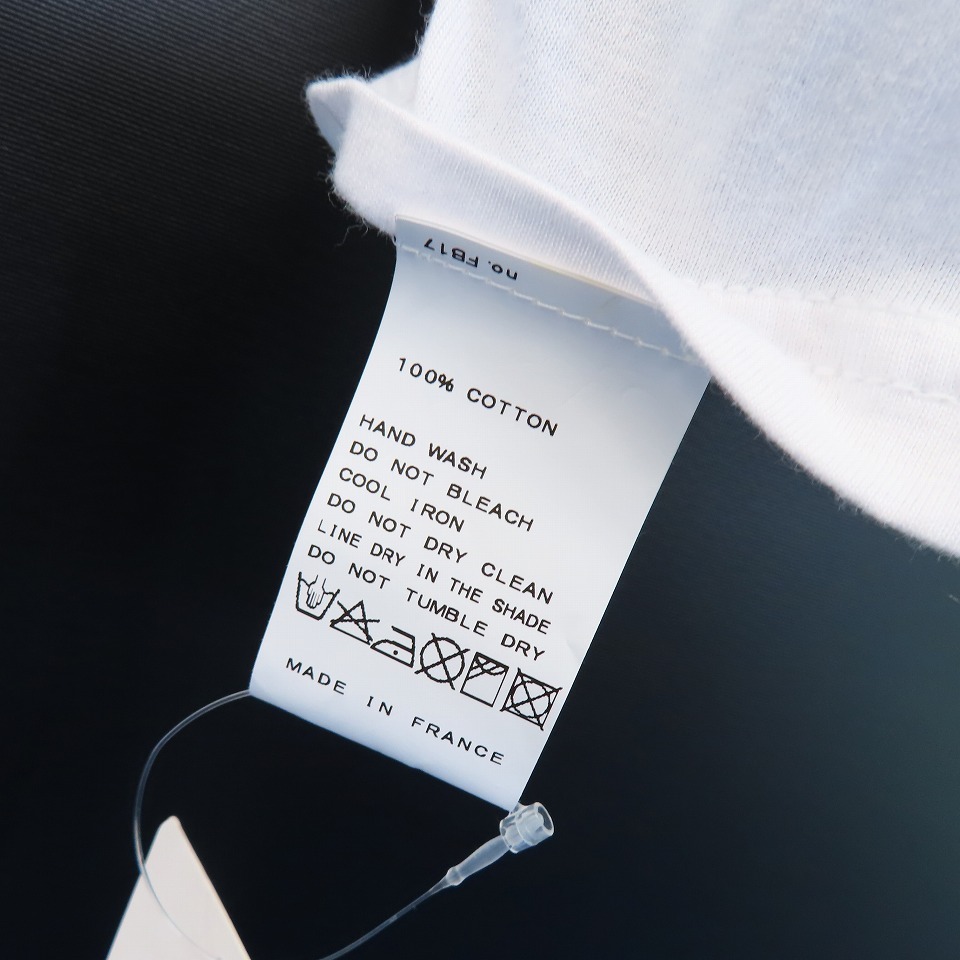 no. FB17
100% COTTON
HAND WASH
DO NOT BLEACH
COOL IRON
DO NOT DRY CLEAN
LINE DRY IN THE SHADE
DO NOT TUMBLE DRY
MADE IN FRANCE